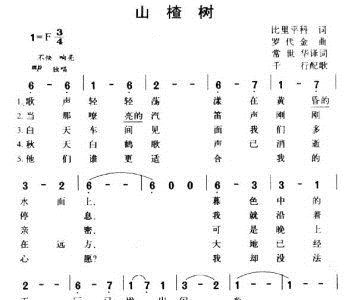 山楂树
1=F 3/4
比里平科 词
罗代金 曲
常世华译词
千 行配歌
不快 响亮
独唱
6 - - 6 - 1 6 - - 6 - 7 1 - 7
1.歌 声 轻 轻 荡 漾 在 黄 昏的
2.当 那 嘹 亮的 汽 笛 声 刚 刚
3.白 天 车 间 见 面 我 们 多
4.秋 天 白 鹤 歌 声 已 消 逝
5.他 们 谁 更 适 合 我 的
3 - 2 6 - - 6 - - 6 - 7 1 - 2
水 面 上, 暮 色 中 的
停 息, 我 就 沿 着
亲 密, 可 是 晚 上
在 远 方, 大 地 已 经
心 愿? 我 却 没 法